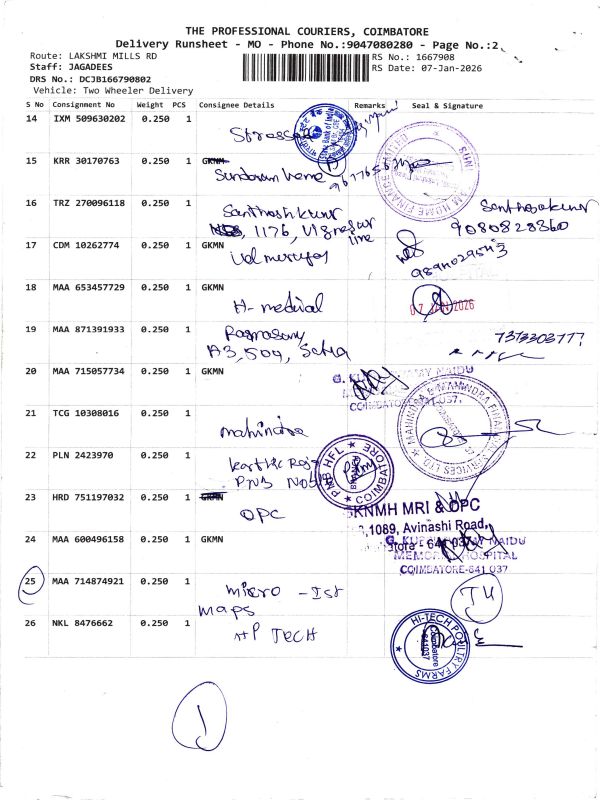 THE PROFESSIONAL COURIERS, COIMBATORE
Delivery Runsheet - MO - Phone No.:9047080280 - Page No.:2
Route: LAKSHMI MILLS RD
RS No.: 1667908
Staff: JAGADEES
RS Date: 07-Jan-2026
DRS No.: DCJB166790802
Vehicle: Two Wheeler Delivery
S No Consignment No Weight PCS Consignee Details Remarks Seal & Signature
14 IXM 509630202 0.250 1
15 KRR 30170763 0.250 1 GKNM
Sundaram home
16 TRZ 270096118 0.250 1
Santhosh kumar
Santhosakumar
1176, Vignesur
9080828860
line
17 CDM 10262774 0.250 1 GKNM
9894029543
18 MAA 653457729 0.250 1 GKNM
H- medical
07 JAN 2026
19 MAA 871391933 0.250 1
A3, 504,
7373303777
20 MAA 715057734 0.250 1 GKNM
COIMBATORE-641 037.
21 TCG 10308016 0.250 1
mahindra
MAHINDRA & MAHINDRA FINANCIAL SERVICES LTD.
22 PLN 2423970 0.250 1
Karthic Raj
PNB
PNB HFL
COIMBATORE
23 HRD 751197032 0.250 1 GKNM
OPC
KNMH MRI & OPC
1089, Avinashi Road,
24 MAA 600496158 0.250 1 GKNM
MEMORIAL HOSPITAL
COIMBATORE-641 037
25 MAA 714874921 0.250 1
micro - Ist
maps
26 NKL 8476662 0.250 1
HP TECH
HI-TECH POULTRY FARMS
Coimbatore
641037
1